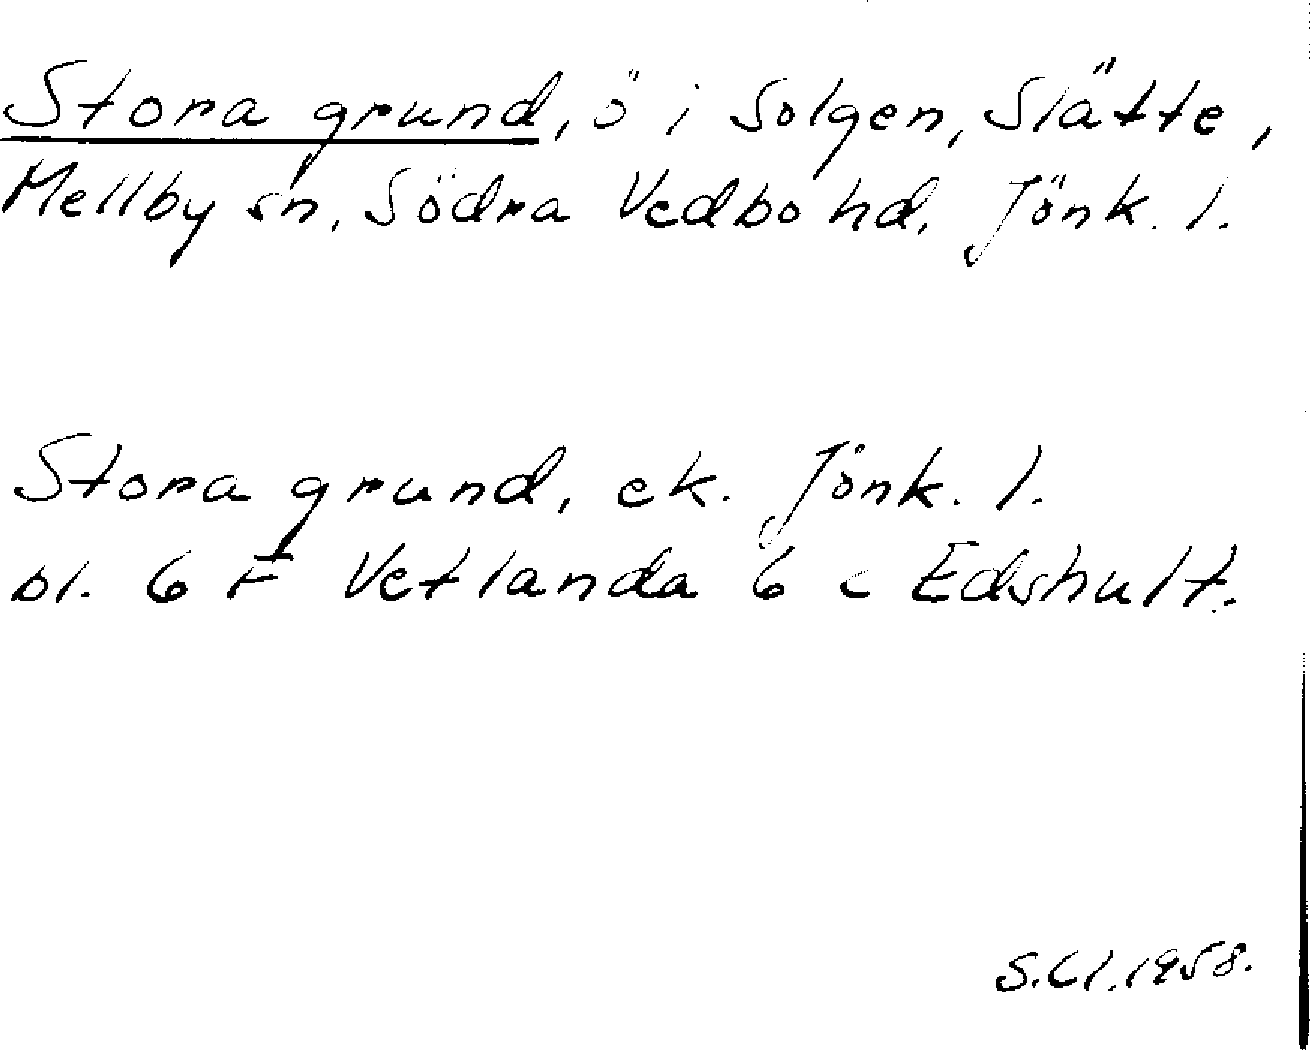 Stora grund, ö i Solgen, Slätte,
Mellby sn, Södra Vedbo hd, Jönk. l.
Stora grund, ek. Jönk. l.
bl. 6 F Vetlanda 6 c Edshult.
S.Cl.1958.